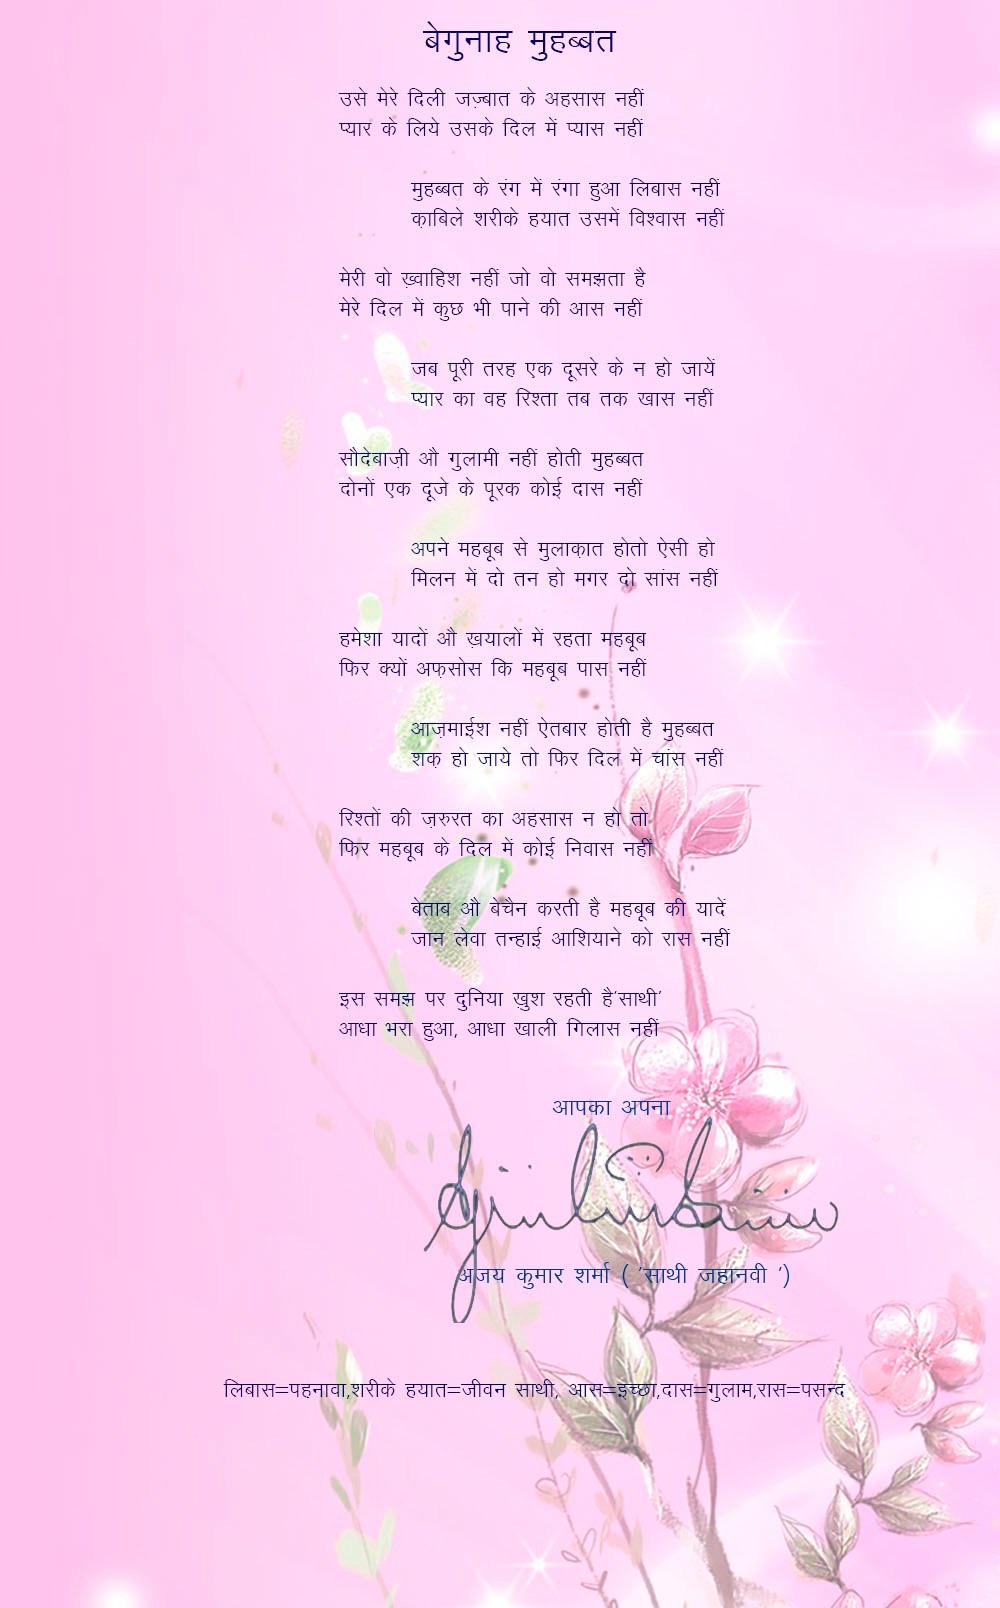 बेगुनाह मुहब्बत
उसे मेरे दिली जज़्बात के अहसास नहीं
प्यार के लिये उसके दिल में प्यास नहीं
मुहब्बत के रंग में रंगा हुआ लिबास नहीं
क़ाबिले शरीके हयात उसमें विश्वास नहीं
मेरी वो ख़्वाहिश नहीं जो वो समझता है
मेरे दिल में कुछ भी पाने की आस नहीं
जब पूरी तरह एक दूसरे के न हो जायें
प्यार का वह रिश्ता तब तक खास नहीं
सौदेबाज़ी औ गुलामी नहीं होती मुहब्बत
दोनों एक दूजे के पूरक कोई दास नहीं
अपने महबूब से मुलाक़ात होतो ऐसी हो
मिलन में दो तन हो मगर दो सांस नहीं
हमेशा यादों औ ख़यालों में रहता महबूब
फिर क्यों अफ़सोस कि महबूब पास नहीं
आज़माईश नहीं ऐतबार होती है मुहब्बत
शक़ हो जाये तो फिर दिल में चांस नहीं
रिश्तों की ज़रुरत का अहसास न हो तो
फिर महबूब के दिल में कोई निवास नहीं
बेताब औ बेचैन करती है महबूब की यादें
जान लेवा तन्हाई आशियाने को रास नहीं
इस समझ पर दुनिया ख़ुश रहती है'साथी'
आधा भरा हुआ, आधा खाली गिलास नहीं
आपका अपना
अजय कुमार शर्मा ( 'साथी जहानवी ')
लिबास=पहनावा,शरीके हयात=जीवन साथी, आस=इच्छा,दास=गुलाम,रास=पसन्द